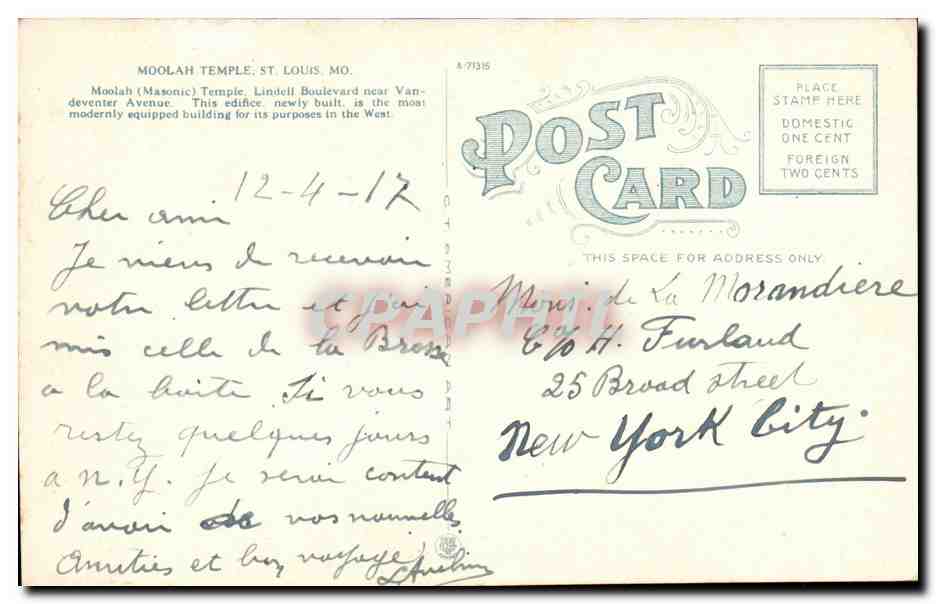 MOOLAH TEMPLE, ST. LOUIS, MO.
Moolah (Masonic) Temple, Lindell Boulevard near Van-
deventer Avenue. This edifice, newly built, is the most
modernly equipped building for its purposes in the West.
12-4-17
Cher ami
Je viens de recevoir
votre lettre et j'ai
mis celle de la Brosse
a la boite Si vous
restez quelques jours
a N.Y. je serai content
d'avoir de vos nouvelles.
Amitiés et bon voyage
A-71315
POST
CARD
PLACE
STAMP HERE
DOMESTIC
ONE CENT
FOREIGN
TWO CENTS
THIS SPACE FOR ADDRESS ONLY.
Monsr. de La Morandiere
C/o H. Furland
25 Broad street
New York City.
CPAPHIL